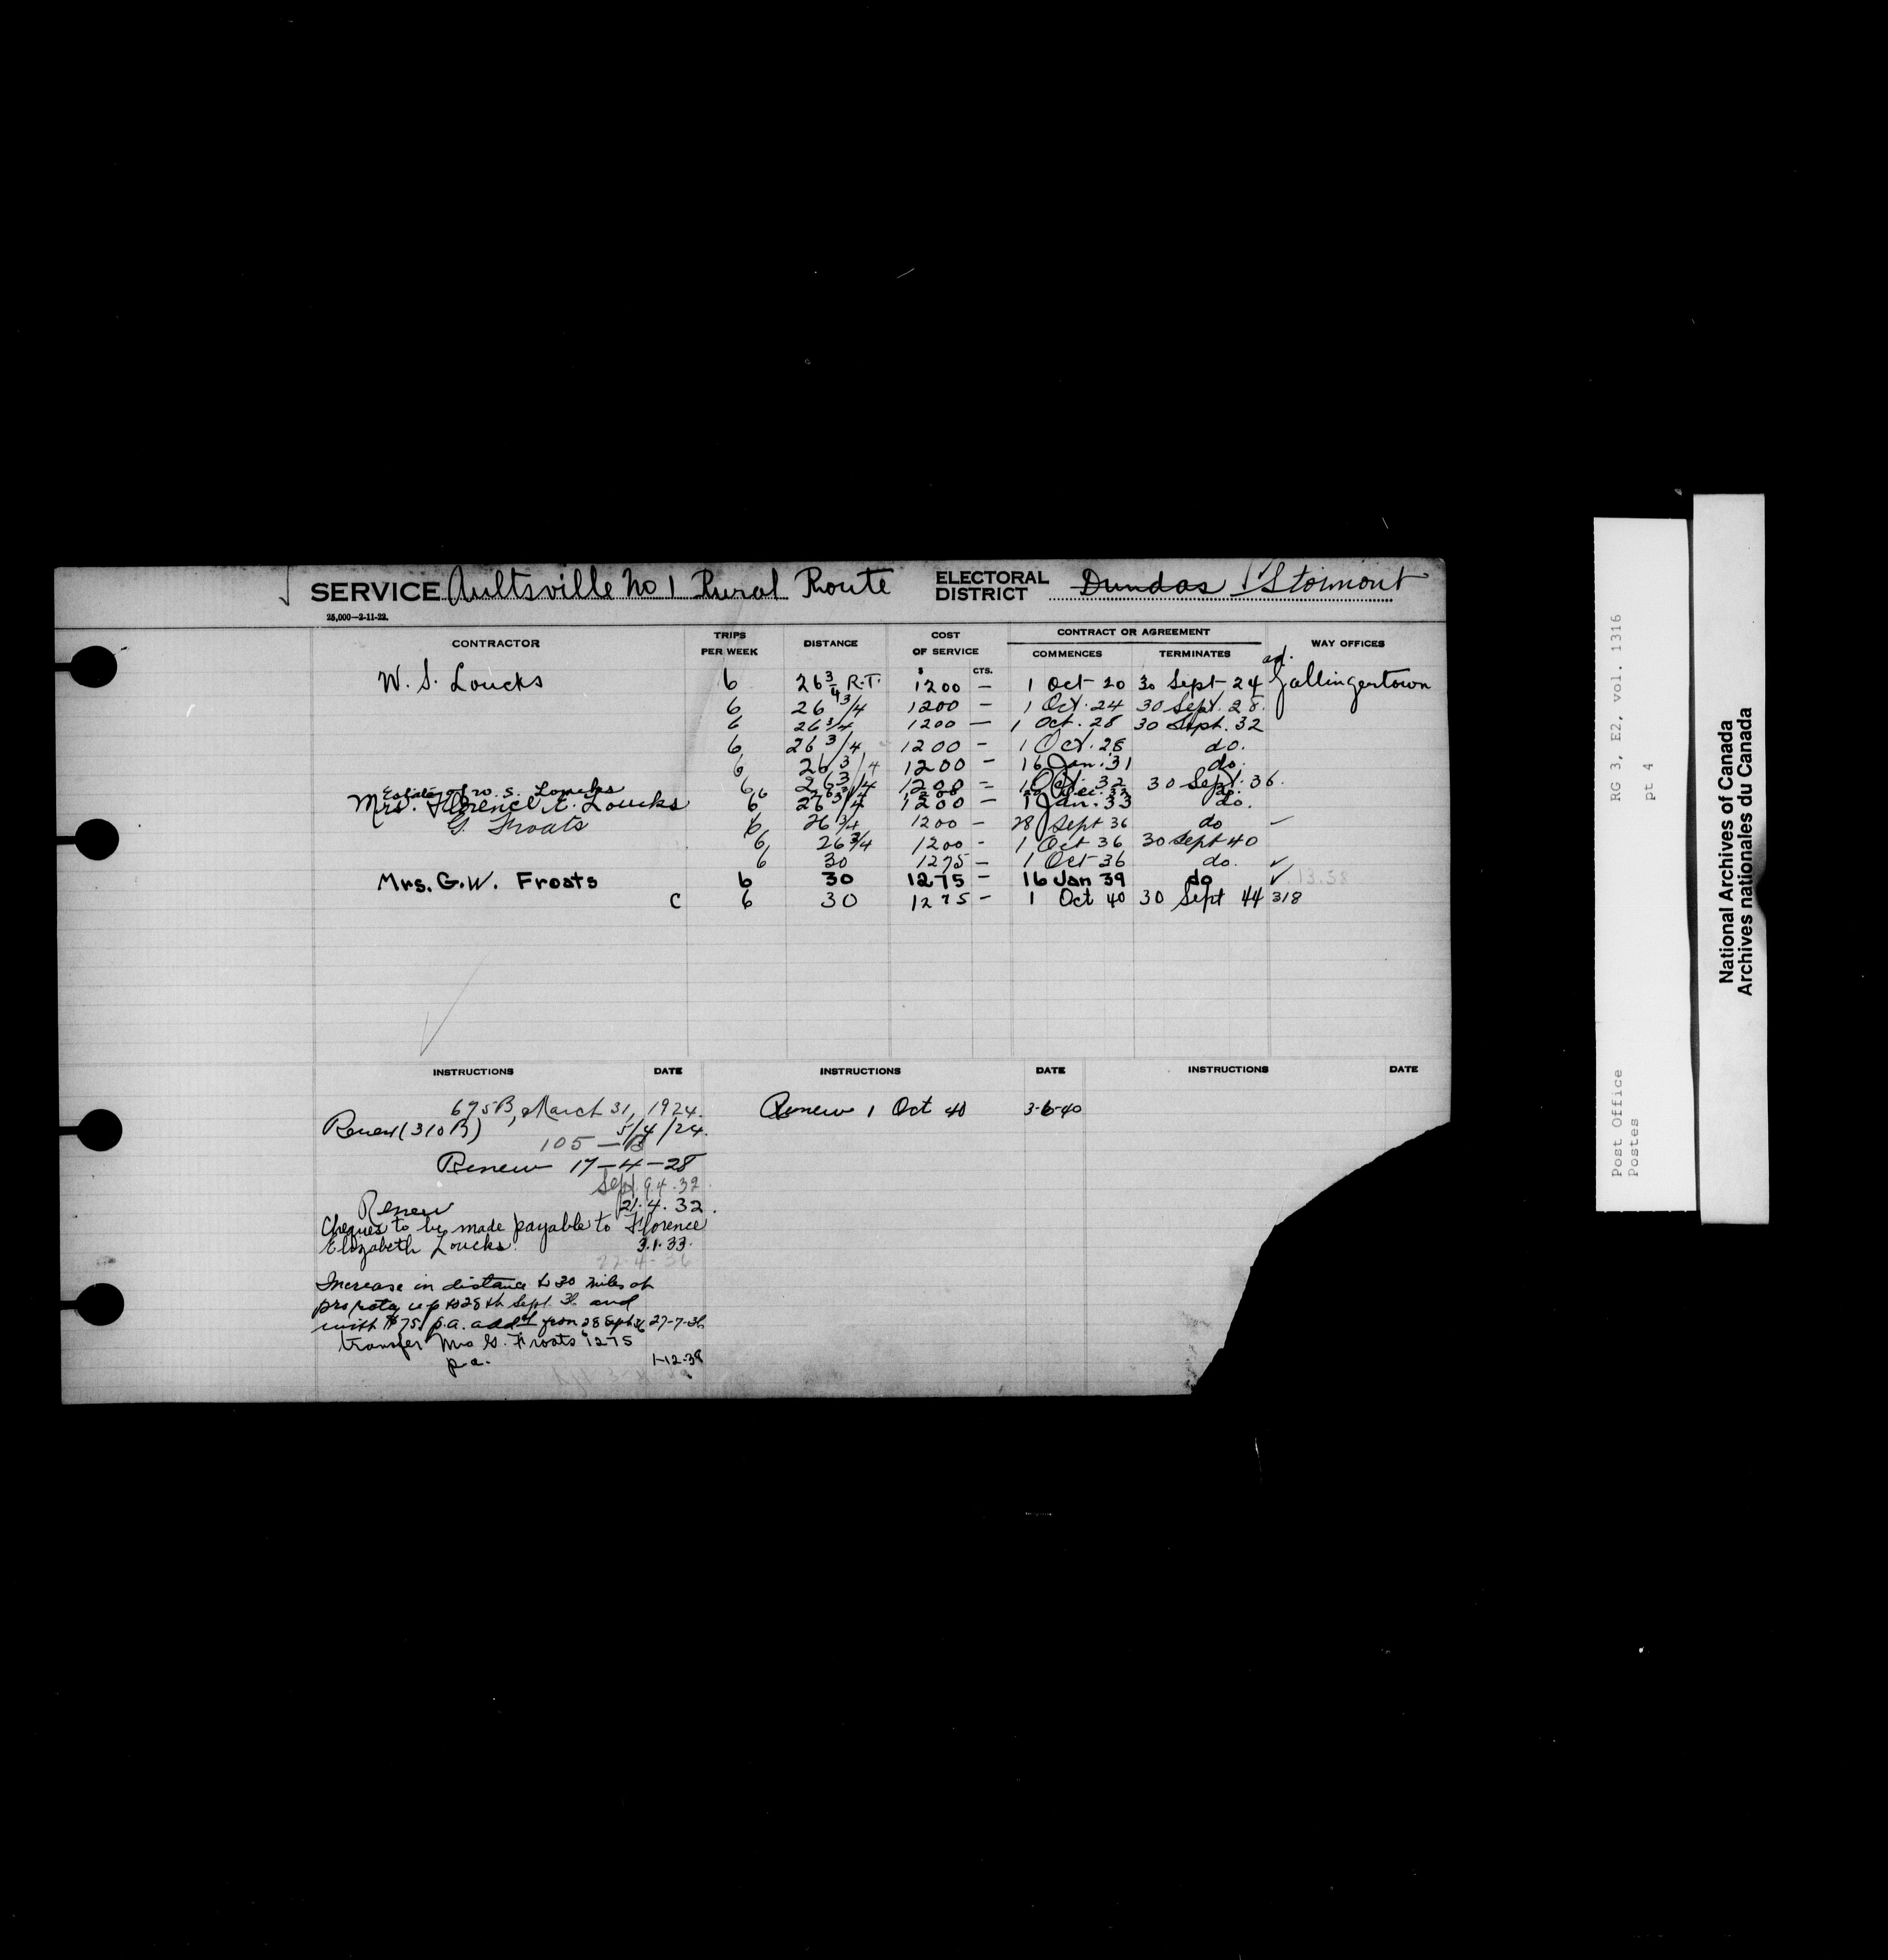 SERVICE Aultsville No 1 Rural Route ELECTORAL DISTRICT Dundas Stormont
25,000—2-11-22.
CONTRACTOR TRIPS PER WEEK DISTANCE COST OF SERVICE CONTRACT OR AGREEMENT COMMENCES TERMINATES WAY OFFICES
$ CTS.
W. S. Loucks 6 26 3/4 R.T. 1200 — 1 Oct 20 30 Sept 24 Gallingertown
6 26 3/4 1200 — 1 Oct. 24 30 Sept. 28.
6 26 3/4 1200 — 1 Oct. 28 30 Sept. 32
6 26 3/4 1200 — 1 Oct. 28 do.
6 26 3/4 1200 — 16 Jan. 31 do.
6 26 3/4 1200 — 1 Oct. 32 30 Sept. 36.
Estate of W. S. Loucks 6 26 3/4 1200 Dec. 32 do.
Mrs. Florence E. Loucks 6 26 3/4 1200 — 1 Jan. 33 do.
G. Froats 6 26 3/4 1200 — 28 Sept 36 do —
6 26 3/4 1200 - 1 Oct 36 30 Sept 40
6 30 1275 — 1 Oct 36 do. ✓
Mrs. G.W. Froats 6 30 1275 — 16 Jan 39 do ✓
C 6 30 1275 — 1 Oct 40 30 Sept 44 318
INSTRUCTIONS DATE INSTRUCTIONS DATE INSTRUCTIONS DATE
675B, March 31, 1924.
Renew (310 B) 5/4/24.
105 — B
Renew 17-4-28
Renew 21.4.32.
Cheques to be made payable to Florence
Elizabeth Loucks. 3.1.33.
22-4-36
Increase in distance to 30 miles at
pro rata up to 28th Sept. 36 and
with $75 p.a. add'l from 28 Sept 36 27-7-36
transfer Mrs G. Froats 1275
p.a. 1-12-38
Renew 1 Oct 40 3-6-40
Post Office
Postes
RG 3, E2, vol. 1316
pt 4
National Archives of Canada
Archives nationales du Canada